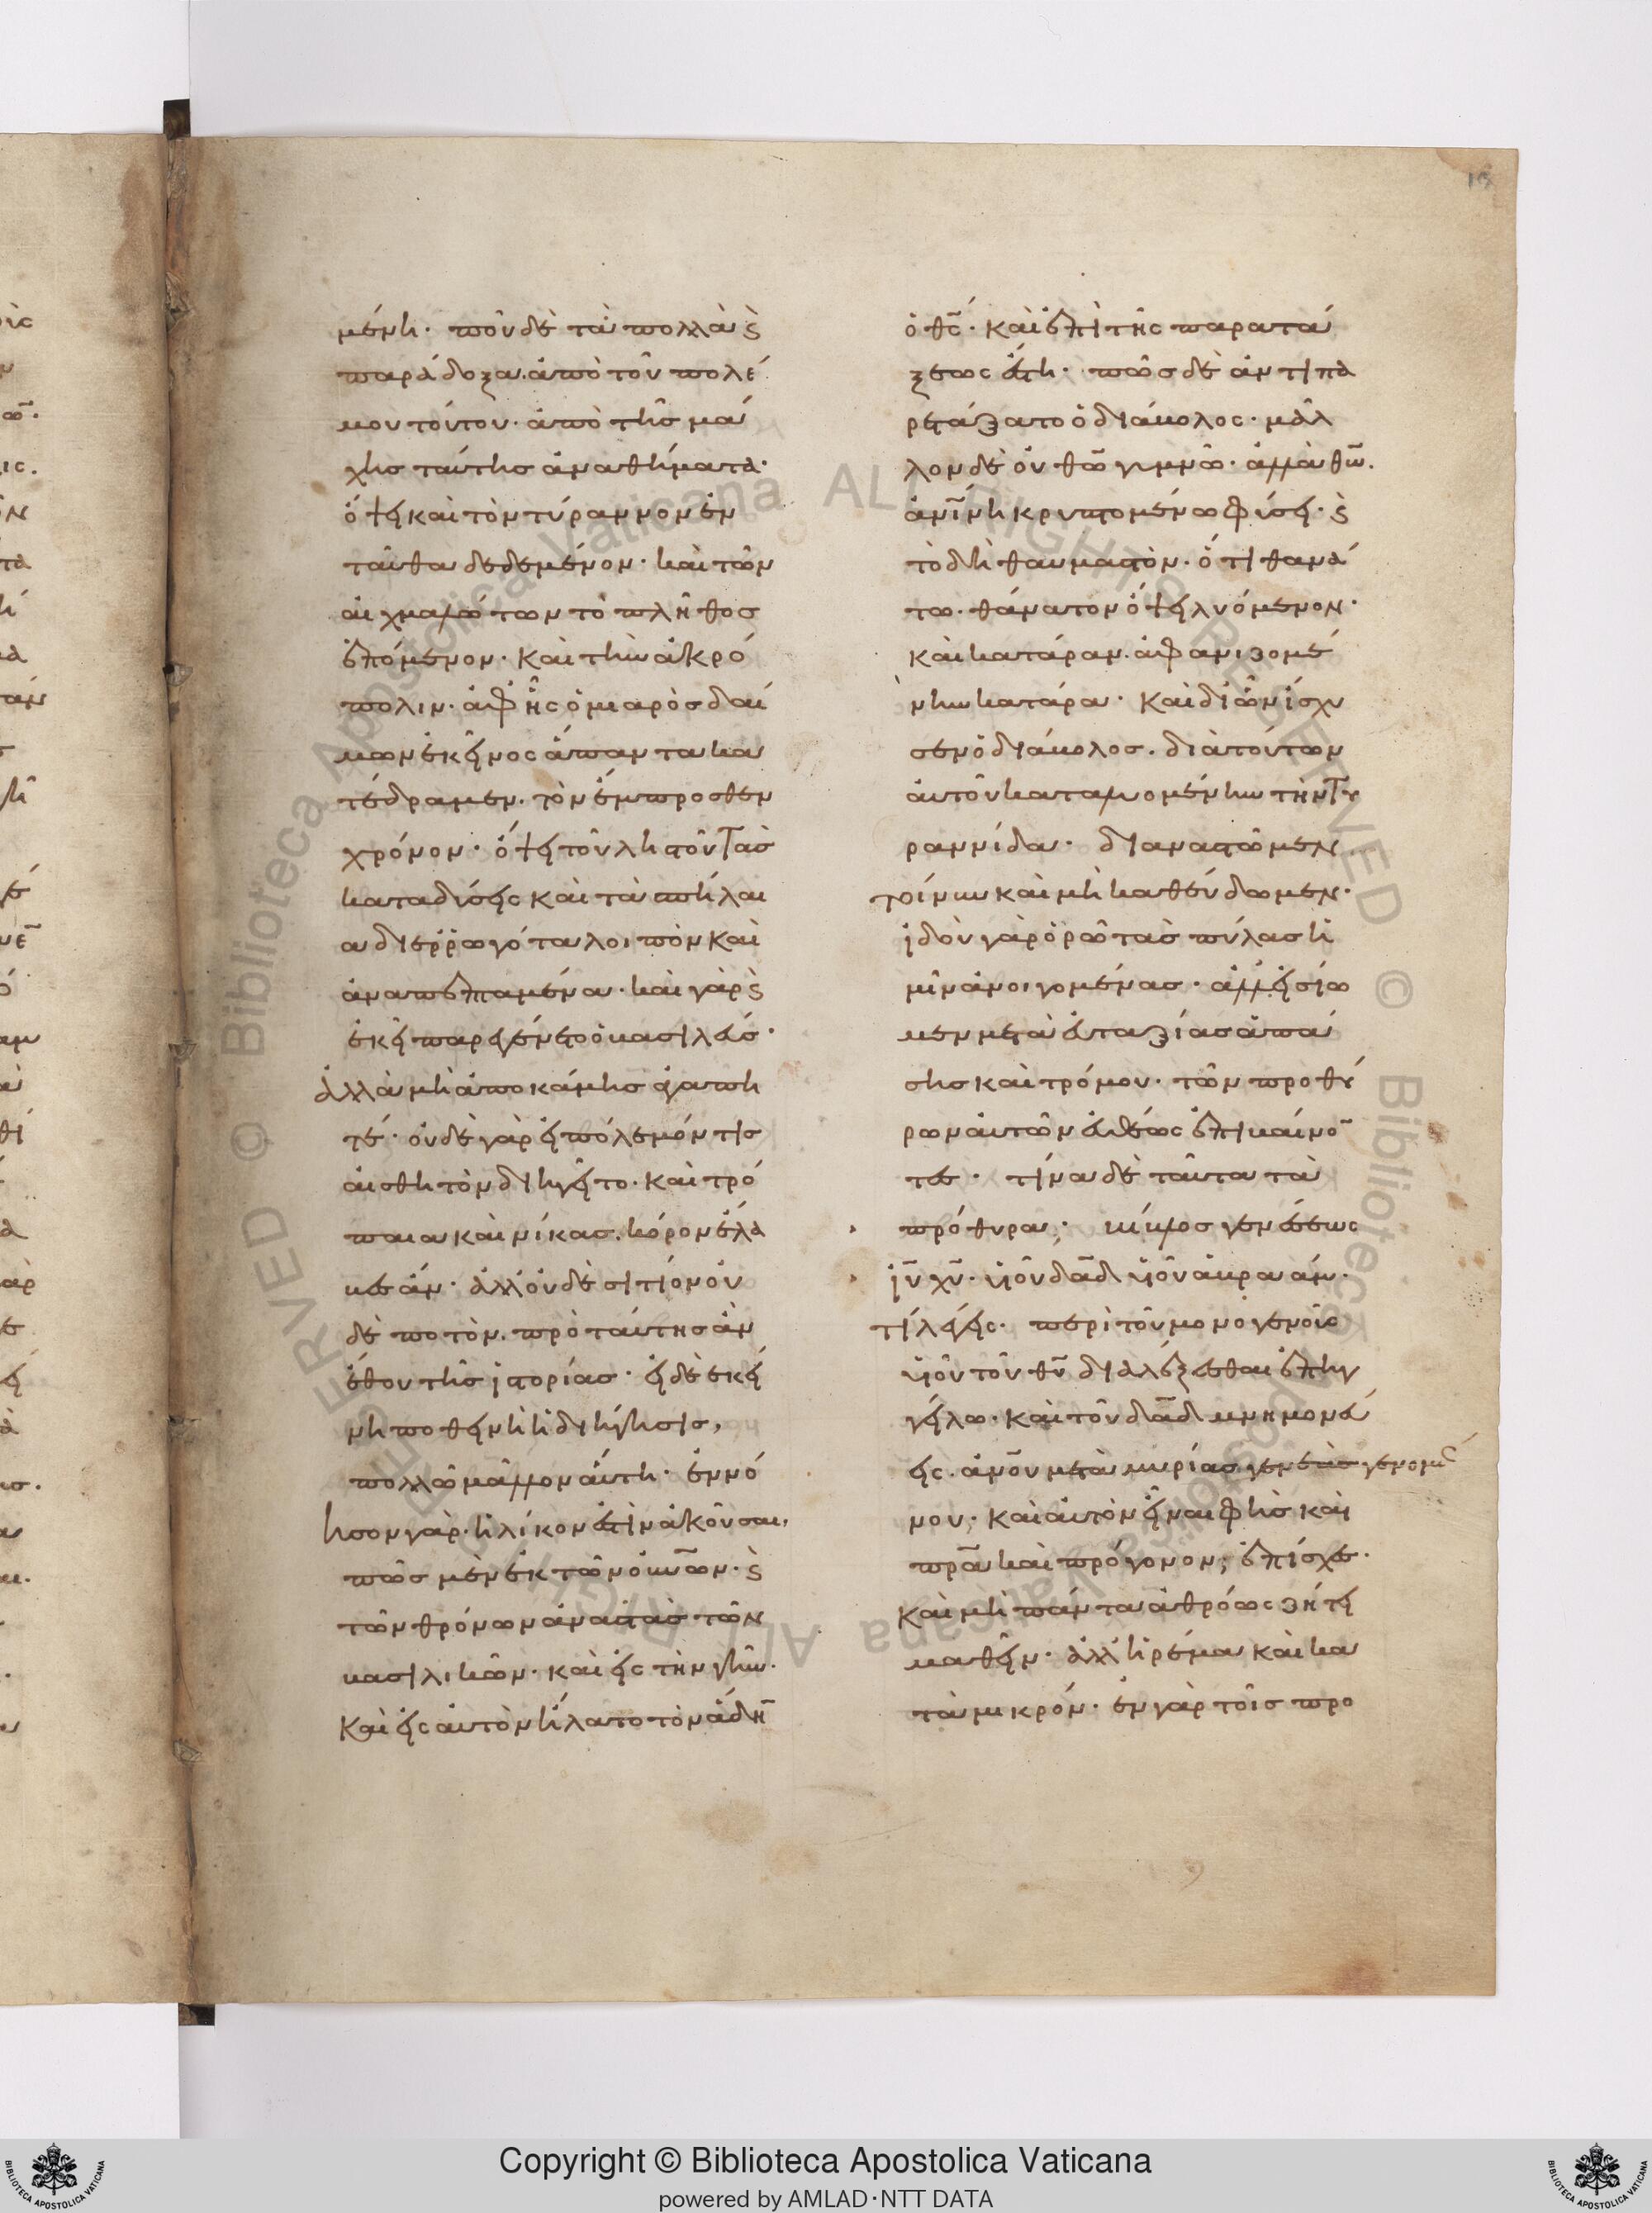 μένη· ποῦ δὲ τὰ πολλὰ ϛ
παράδοξα. ἀπὸ τοῦ πολέ
μου τούτου· ἀπὸ τῆς μά
χης ταύτης ἀναθήματα·
ὄψει καὶ τὸν τύραννον ἐν
ταῦθα δεδεμένον· καὶ τῶν
αἰχμαλώτων τὸ πλῆθος
ἑπόμενον· καὶ τὴν ἀκρό
πολιν· ἀφ' ἧς ὁ μιαρὸς δαί
μων ἐκεῖνος ἅπαντα κα
τέδραμεν. τὸν ἔμπροσθεν
χρόνον· ὄψει τοῦ ληστοῦ τὰς
καταδύσεις καὶ τὰ σπήλαι
α διερρωγότα λοιπὸν καὶ
ἀναπεπταμένα· καὶ γὰρ ϛ
ἐκεῖ παρεγένετο ὁ βασιλεύς·
ἀλλὰ μὴ ἀποκάμης ἀγαπη
τέ· οὐδὲ γὰρ εἰ πόλεμόν τις
αἰσθητὸν διηγεῖτο. καὶ τρό
παια καὶ νίκας. κόρον ἔλα
βες ἄν· ἀλλ' οὐδὲ σιτίον οὐ
δὲ ποτὸν. πρὸ ταύτης ἂν
ἔθου τῆς ἱστορίας· εἰ δὲ ἐκεί
νη ποθεινὴ ἡ διήγησις,
πολλῶ μᾶλλον αὕτη· ἐννό
ησον γὰρ. ἡλίκον ἐστὶν ἀκοῦσαι,
πῶς μὲν ἐκ τῶν οὐνῶν· ϛ
τῶν θρόνων ἀναστὰς τῶν
βασιλικῶν· καὶ εἰς τὴν γῆν·
καὶ εἰς αὐτὸν ἥλατο τὸν ἅδη
ὁ θς· καὶ ἐπὶ τῆς παρατά
ξεως ἔστη· πῶς δὲ ἀντιπα
ρετάξατο ὁ διάβολος· μᾶλ
λον δὲ οὐ θῶ γυμνῶ· ἀλλὰ θῶ.
ἀνίνη κρυπτομένω φύσει· ϛ
τὸ δὴ θαυμαστὸν. ὅτι θανά
τω. θάνατον ὄψει λυόμενον·
καὶ κατάραν. ἀφανιζομέ
νην κατάρα· καὶ δι' ὧν ἴσχυ
σεν ὁ διάβολος. διὰ τούτων
αὐτοῦ καταλυομένην τὴν τυ
ραννίδα· διαναστῶμεν
τοίνυν καὶ μὴ καθεύδωμεν·
ἰδοὺ γὰρ ὁρῶ τὰς πύλας ἡ
μῖν ἀνοιγομένας· ἀλλ' εἰσίω
μεν μετὰ εὐταξίας ἁπά
σης καὶ τρόμου· τῶν προθύ
ρων αὐτῶν εὐθέως ἐπιβαίνο
τες· τίνα δὲ ταῦτα τὰ
πρόθυρα; βίβλος γενέσεως
ἰῦ χῦ. υἱοῦ δᾱδ υἱοῦ ἀβραάμ·
τί λέγεις· περὶ τοῦ μονογενοῦς
υἱοῦ τοῦ θῦ διαλέξεσθαι ἐπηγ
γείλω· καὶ τοῦ δᾱδ μνημονεύ
εις. ἀνοῦ μετὰ μυρίας γενεὰς γενομέ
νου· καὶ αὐτὸν εἶναι φὴς καὶ
πρᾱ καὶ πρόγονον; ἐπίσχες·
καὶ μὴ πάντα ἀθρόως ζήτει
μαθεῖν· ἀλλ' ἠρέμα καὶ κα
τὰ μικρόν· ἐν γὰρ τοῖς προ
Copyright © Biblioteca Apostolica Vaticana
powered by AMLAD·NTT DATA